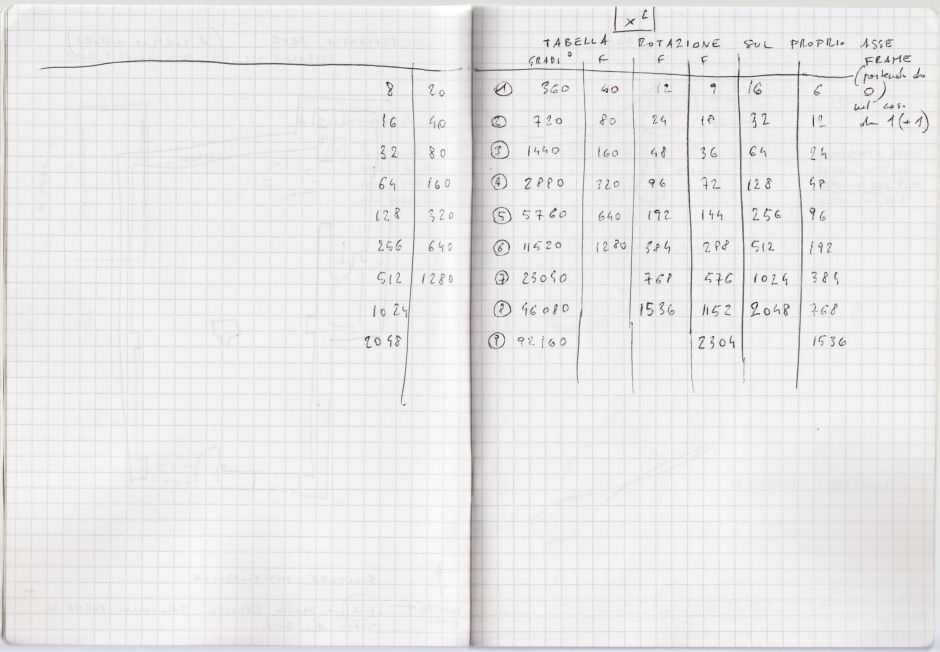 x²
TABELLA ROTAZIONE SUL PROPRIO ASSE
GRADI° F F F FRAME
(partendo da
8 20 ① 360 40 12 9 16 6 0)
nel caso
16 40 ② 720 80 24 18 32 12 da 1 (+1)
32 80 ③ 1440 160 48 36 64 24
64 160 ④ 2880 320 96 72 128 48
128 320 ⑤ 5760 640 192 144 256 96
256 640 ⑥ 11520 1280 384 288 512 192
512 1280 ⑦ 23040 768 576 1024 384
1024 ⑧ 46080 1536 1152 2048 768
2048 ⑨ 92160 2304 1536